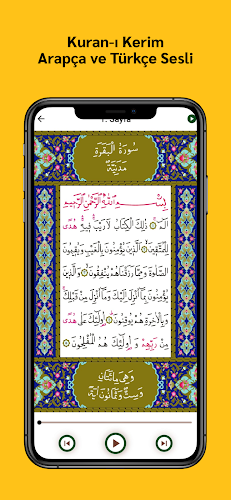 Kuran-ı Kerim
Arapça ve Türkçe Sesli
1. Sayfa
سورة البقرة
مدنية
بسم الله الرحمن الرحيم
الم ذلك الكتاب لا ريب فيه هدى
للمتقين الذين يؤمنون بالغيب ويقيمون
الصلوة ومما رزقناهم ينفقون والذين
يؤمنون بما انزل اليك وما انزل من قبلك
وبالاخرة هم يوقنون اولئك على هدى
من ربهم و اولئك هم المفلحون
وهي مائتان
وست وثمانون اية